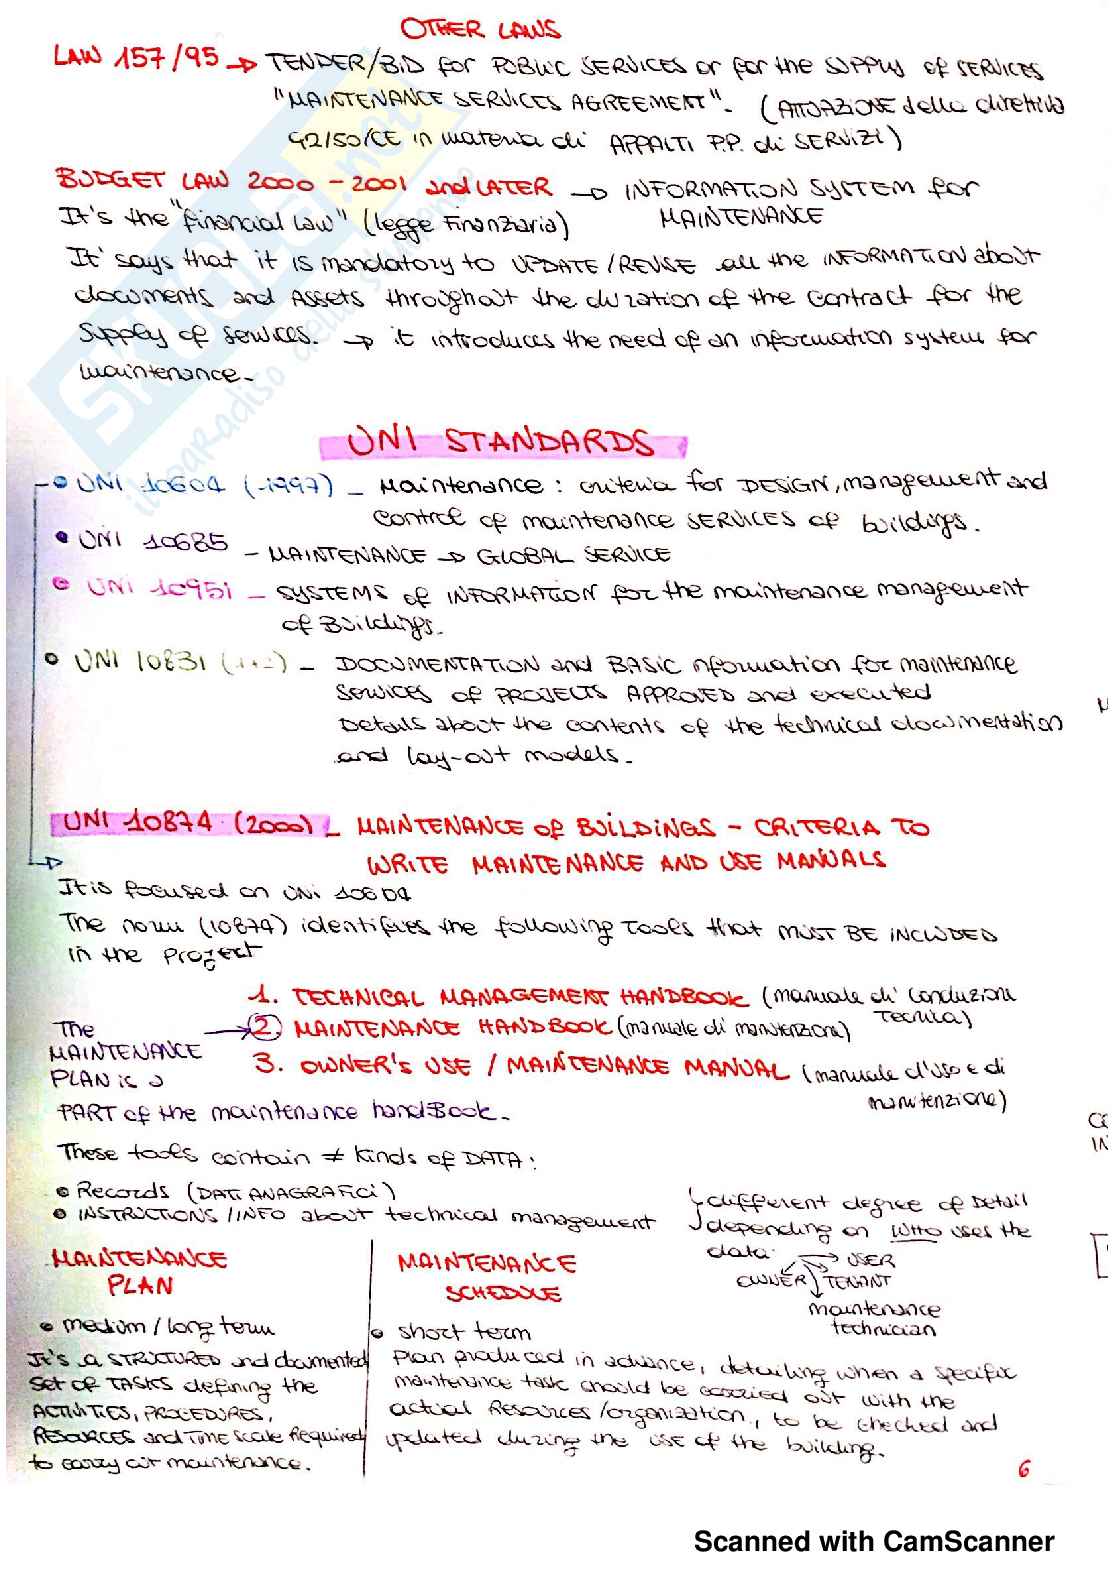 OTHER LAWS
LAW 157/95 → TENDER/BID for PUBLIC SERVICES or for the SUPPLY of SERVICES
"MAINTENANCE SERVICES AGREEMENT". (ATTUAZIONE della direttiva
92/50/CE in materia di APPALTI P.P. di SERVIZI)
BUDGET LAW 2000 - 2001 and LATER → INFORMATION SYSTEM for
MAINTENANCE
It's the "financial law" (legge Finanziaria)
It says that it is mandatory to UPDATE/REVISE all the INFORMATION about
documents and ASSETS throughout the duration of the contract for the
supply of services. → it introduces the need of an information system for
maintenance.
UNI STANDARDS
• UNI 10604 (-1997) - Maintenance: criteria for DESIGN, management and
control of maintenance SERVICES of buildings.
• UNI 10685 - MAINTENANCE → GLOBAL SERVICE
• UNI 10951 - SYSTEMS of INFORMATION for the maintenance management
of Buildings.
• UNI 10831 (1+2) - DOCUMENTATION and BASIC information for maintenance
services of PROJECTS APPROVED and executed
Details about the contents of the technical documentation
and lay-out models.
UNI 10874 (2000) - MAINTENANCE of BUILDINGS - CRITERIA TO
WRITE MAINTENANCE AND USE MANUALS
It is focused on UNI 10604
The norm (10874) identifies the following TOOLS that MUST BE INCLUDED
in the Project
1. TECHNICAL MANAGEMENT HANDBOOK (manuale di conduzione
tecnica)
The → 2. MAINTENANCE HANDBOOK (manuale di manutenzione)
MAINTENANCE
3. OWNER'S USE / MAINTENANCE MANUAL (manuale d'uso e di
manutenzione)
PLAN is a
PART of the maintenance handBook.
These tools contain ≠ kinds of DATA:
• Records (DATI ANAGRAFICI)
• INSTRUCTIONS/INFO about technical management
different degree of Detail
depending on WHO uses the
data.
USER
OWNER TENANT
maintenance
technician
MAINTENANCE
PLAN
• medium/long term
It's a STRUCTURED and documented
set of TASKS defining the
ACTIVITIES, PROCEDURES,
RESOURCES and Time scale Required
to carry out maintenance.
MAINTENANCE
SCHEDULE
• short term
Plan produced in advance, detailing when a specific
maintenance task should be carried out with the
actual Resources/organization, to be checked and
updated during the use of the building.
6
Scanned with CamScanner